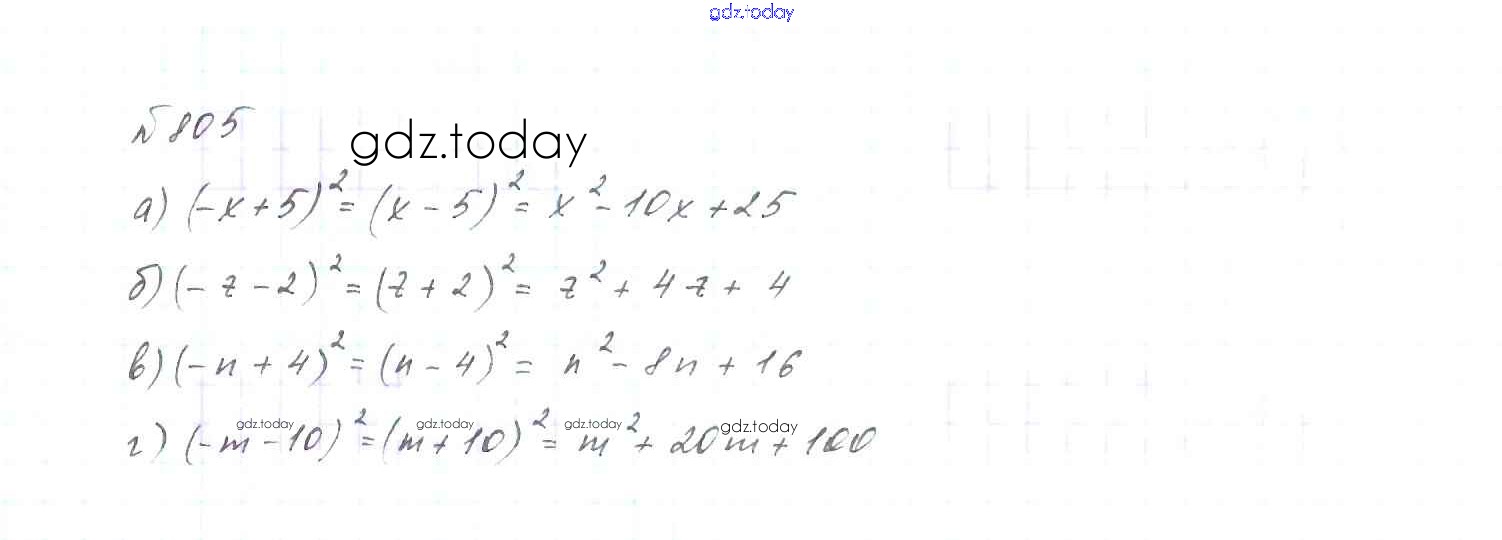 gdz.today
№ 805
gdz.today
а) (-x+5)² = (x-5)² = x² - 10x + 25
б) (-z-2)² = (z+2)² = z² + 4z + 4
в) (-n+4)² = (n-4)² = n² - 8n + 16
gdz.today gdz.today gdz.today gdz.today
г) (-m-10)² = (m+10)² = m² + 20m + 100